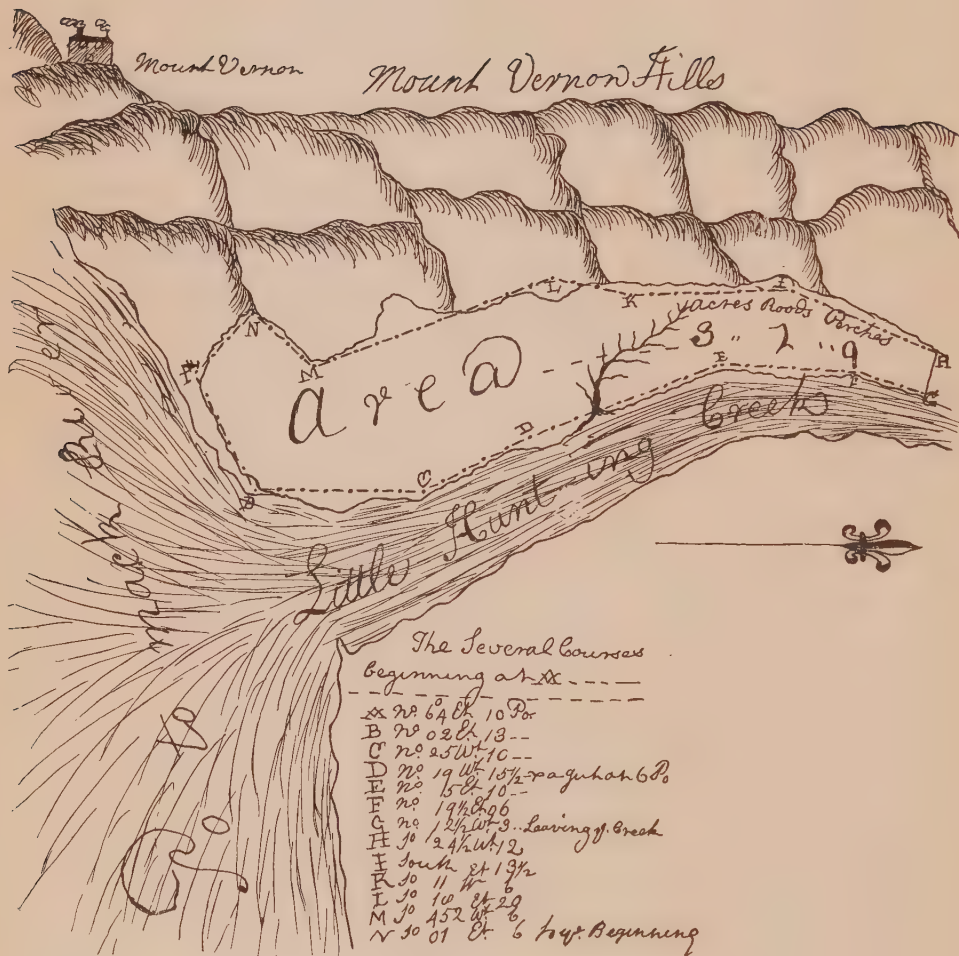 Mount Vernon
Mount Vernon Hills
acres Roods Perches
3 .. 2 .. 9
area
Little Hunting Creek
mack River
N
M
L
K
I
H
G
F
E
D
C
B
The Several Courses
beginning at A
A No. 64 Et. 10 Po
B No. 02 Et. 13
C No. 25 Wt. 10
D No. 19 Wt. 15½ a gut at 6 Po
E No. 15 Et. 10
F No. 19½ Et. 06
G No. 12½ Wt. 3 .. Leaving ye. Creek
H So 24½ Wt. 12
I South Et 13½
K So 11 W 6
L So 18 Et 29
M So 452 Wt 6
N So 01 Et. 6 to ye. Beginning